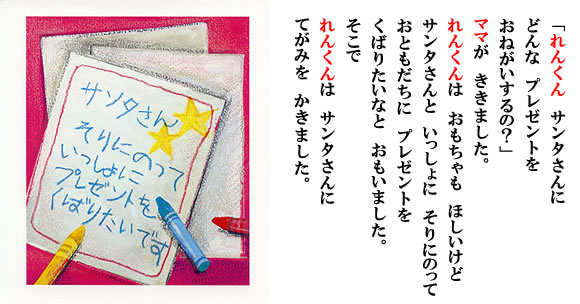 「れんくん　サンタさんに
どんな　プレゼントを
おねがいするの？」
ママが　ききました。
れんくんは　おもちゃも　ほしいけど
サンタさんと　いっしょに　そりにのって
おともだちに　プレゼントを
くばりたいなと　おもいました。
そこで
れんくんは　サンタさんに
てがみを　かきました。
サンタさん
そりにのって
いっしょに
プレゼントを
くばりたいです